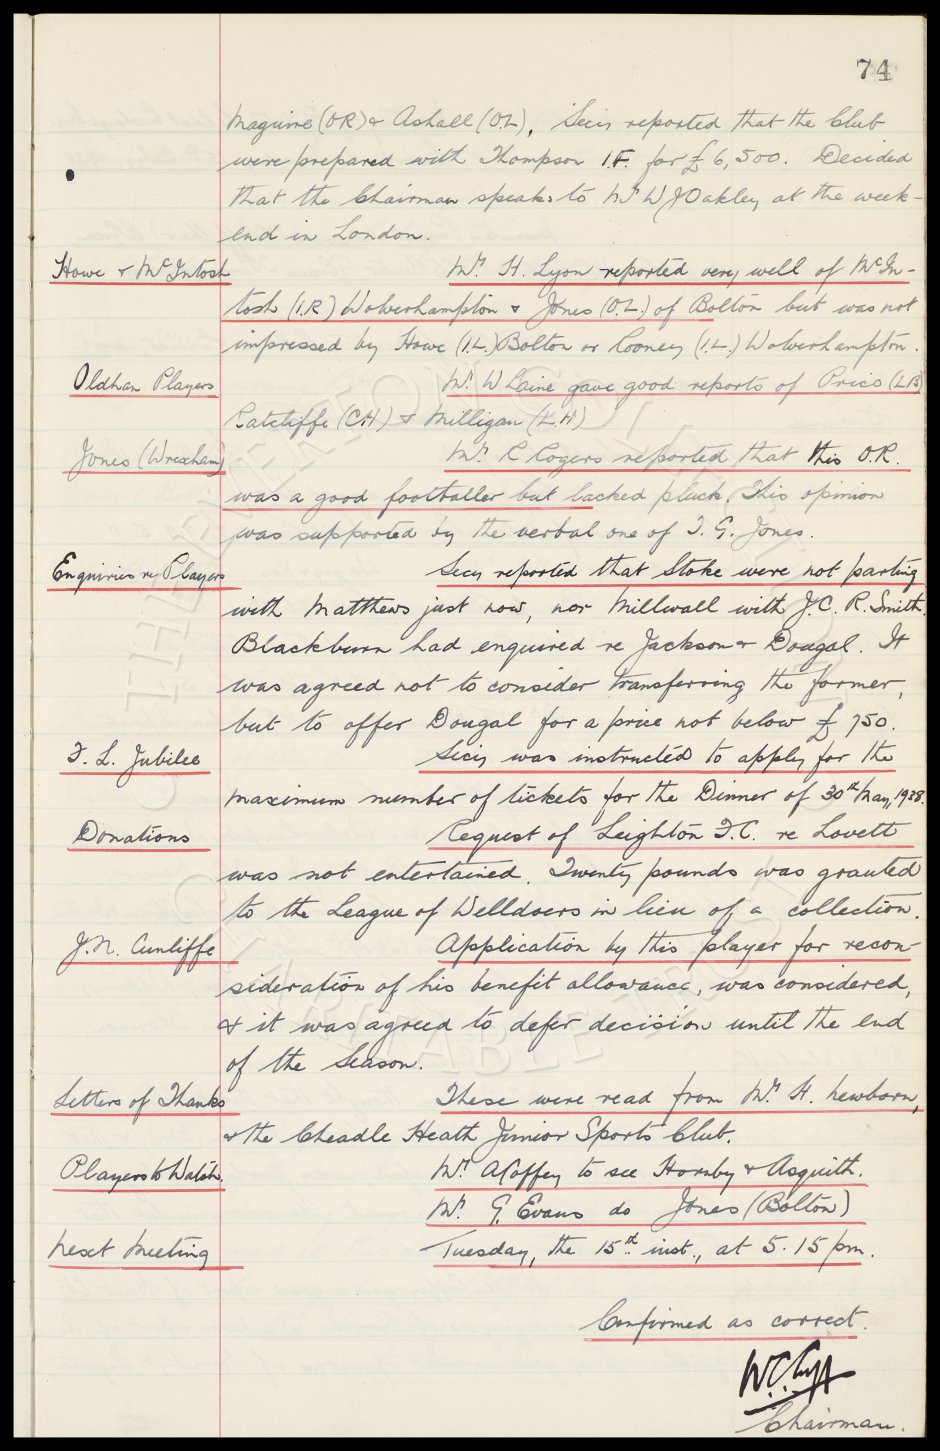 74
Maguire (O.R.) & Ashall (O.L.), Secy reported that the Club
were prepared with Thompson I.F. for £6,500. Decided
that the Chairman speaks to Mr W J Oakley at the week-
end in London.
Howe & McIntosh Mr. H. Lyon reported very well of McIn-
tosh (I.R.) Wolverhampton & Jones (O.L.) of Bolton but was not
impressed by Howe (I.L.) Bolton or Rooney (I.L.) Wolverhampton.
Oldham Players Mr. W Laine gave good reports of Price (L.B)
Ratcliffe (C.H.) & Milligan (L.H.)
Jones (Wrexham) Mr. R Rogers reported that this O.R.
was a good footballer but lacked pluck. This opinion
was supported by the verbal one of T. G. Jones.
Enquiries re Players Secy reported that Stoke were not parting
with Matthews just now, nor Millwall with J.C. R. Smith.
Blackburn had enquired re Jackson & Dougal. It
was agreed not to consider transferring the former,
but to offer Dougal for a price not below £750.
F. L. Jubilee Secy was instructed to apply for the
maximum number of tickets for the Dinner of 30th May, 1938.
Donations Request of Leighton F.C. re Lovett
was not entertained. Twenty pounds was granted
to the League of Welldoers in lieu of a collection.
J.N. Cunliffe Application by this player for recon-
sideration of his benefit allowance, was considered,
& it was agreed to defer decision until the end
of the Season.
Letters of Thanks These were read from Mr. H. Newborn,
& the Cheadle Heath Junior Sports Club.
Players to Watch. Mr. A Coffey to see Hornby & Asquith.
Mr. G. Evans do Jones (Bolton)
Next Meeting Tuesday, the 15th inst., at 5.15 pm.
Confirmed as correct.
Chairman.